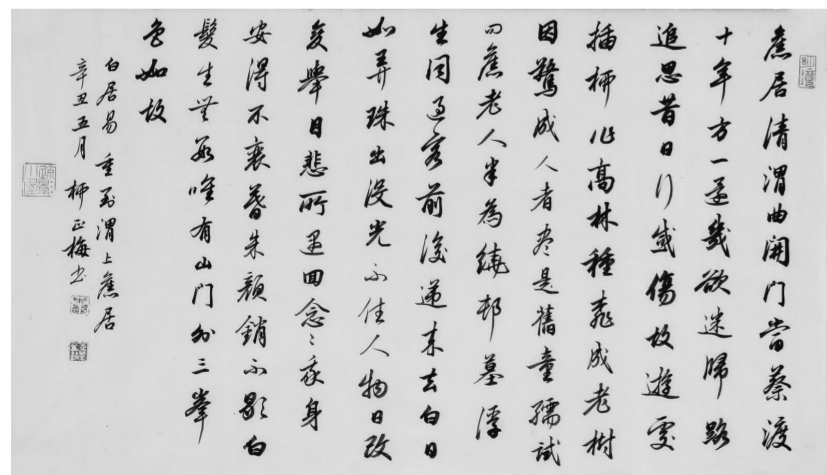 舊居清渭曲開門當蔡渡
十年方一還幾欲迷歸路
追思昔日行感傷故遊處
插柳作高林種桃成老樹
因驚成人者盡是舊童孺試
問舊老人半為繞邨墓浮
生同過客前後遞來去白日
如弄珠出沒光不住人物日改
變舉目悲所遇回念〻我身
安得不衰暮朱顏銷不歇白
髮生無數唯有山門外三峯
色如故
白居易 重到渭上舊居
辛丑五月 柳正梅书